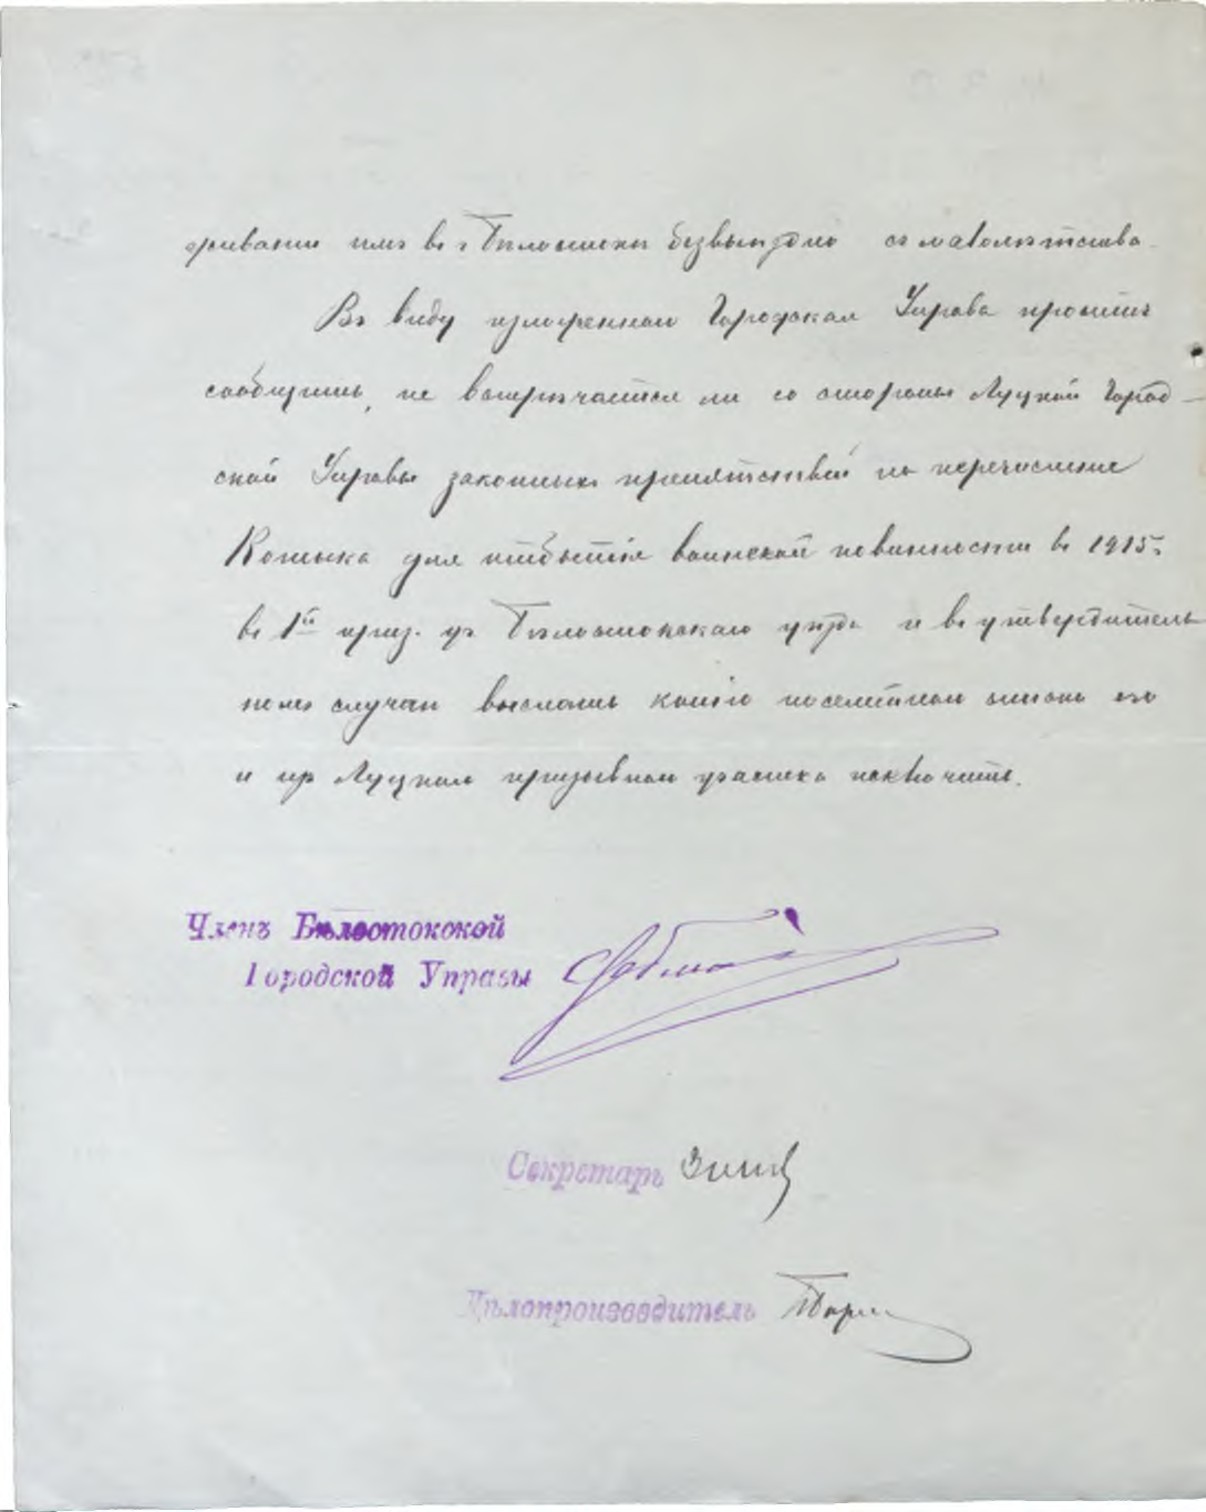 живании имъ въ г. Бѣлостокѣ безвыѣздно съ малолѣтства.
Въ виду изложеннаго Городская Управа проситъ
сообщить, не встрѣчается ли со стороны Луцкой Город-
ской Управы законныхъ препятствій на перечисленіе
Котыка для отбытія воинской повинности въ 1915 г.
въ 1й приз. уч. Бѣлостокскаго уѣзда и въ утвердитель
номъ случаѣ выслать копію посемейнаго списка его
и изъ Луцкаго призывнаго участка исключить.
Членъ Бѣлостокской
Городской Управы
Секретарь
Дѣлопроизводитель